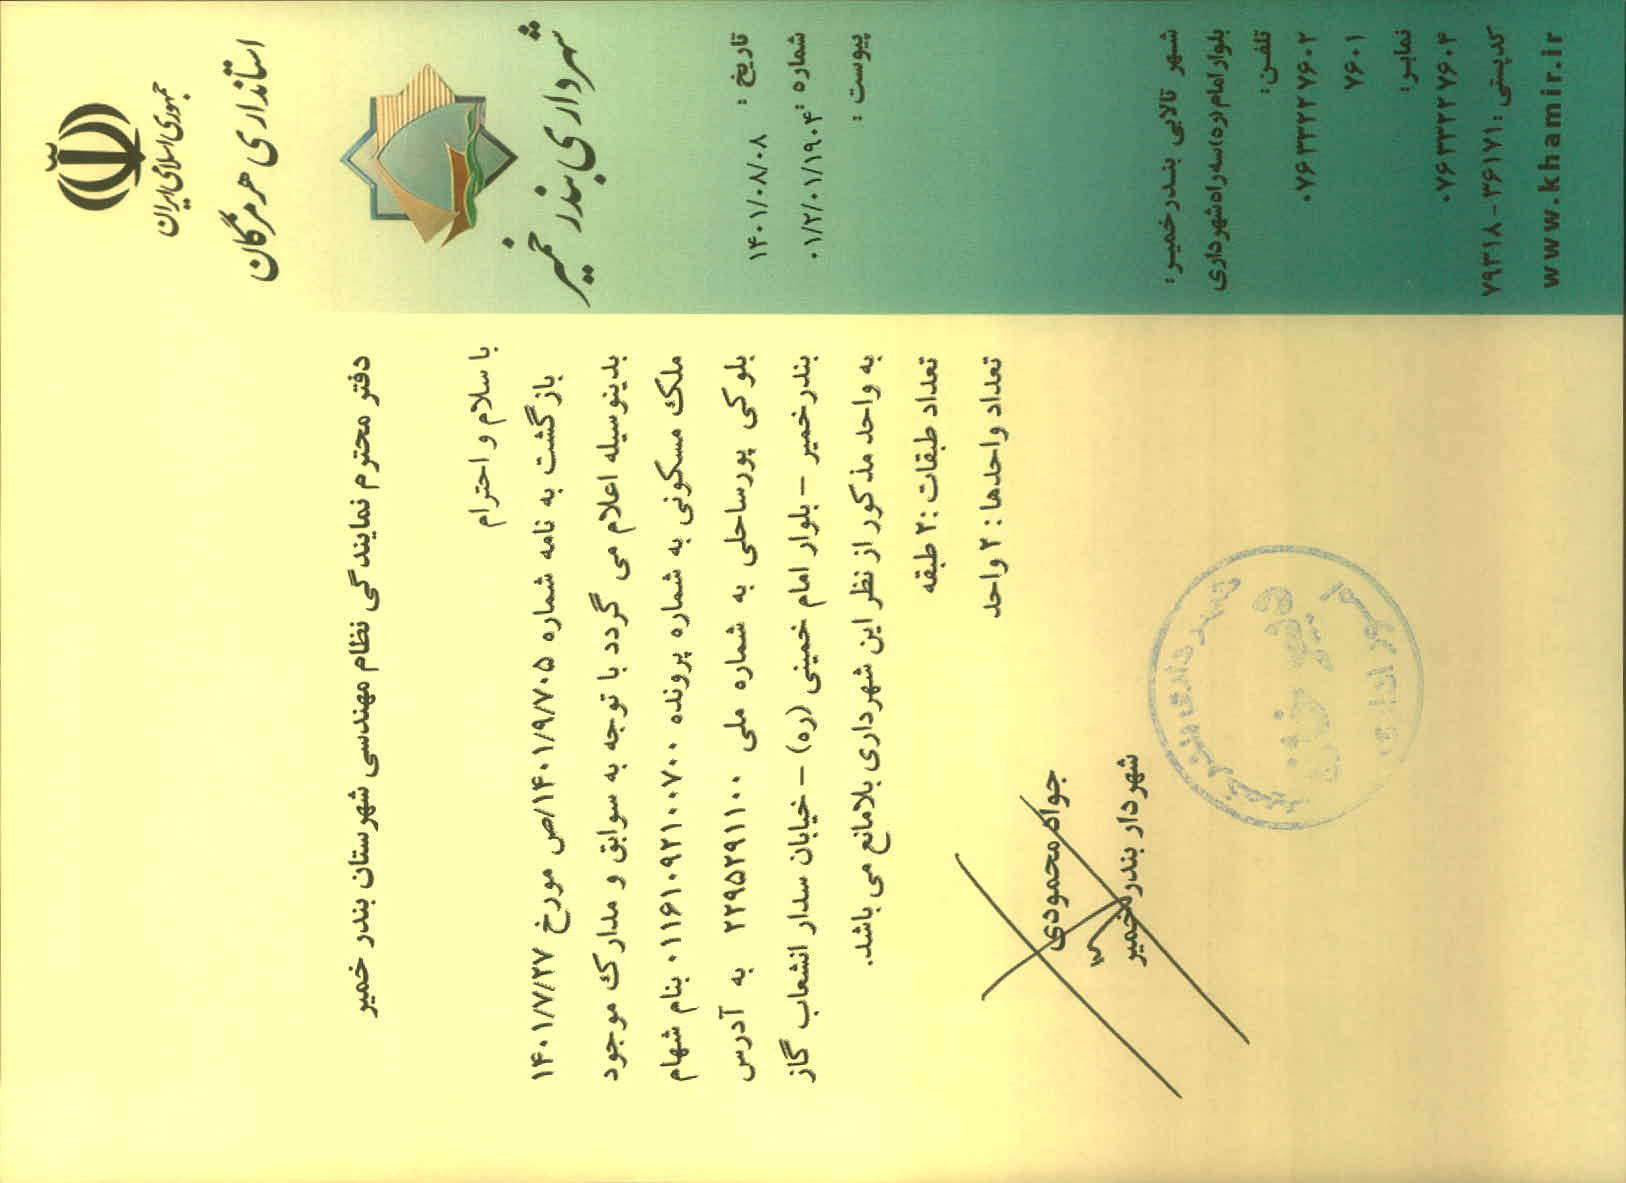 جمهوری اسلامی ایران
استانداری هرمزگان
شهرداری بندر خمیر
تاریخ : ۱۴۰۱/۰۸/۰۸
شماره : ۰۱/۲/۰۱/۱۹۰۴
پیوست :
دفتر محترم نمایندگی نظام مهندسی شهرستان بندر خمیر
با سلام و احترام
بازگشت به نامه شماره ۱۴۰۱/۹/۷۰۵/ص مورخ ۱۴۰۱/۷/۲۷
بدینوسیله اعلام می گردد با توجه به سوابق و مدارک موجود
ملک مسکونی به شماره پرونده ۰۱۱۶۱۰۹۲۱۰۰۷۰۰ بنام شهام
بلوکی پورساحلی به شماره ملی ۲۲۹۵۲۹۱۱۰۰ به آدرس
بندرخمیر – بلوار امام خمینی (ره) – خیابان سدار انشعاب گاز
به واحد مذکور از نظر این شهرداری بلامانع می باشد.
تعداد طبقات :۲ طبقه
تعداد واحدها : ۲ واحد
جواد محمودی
شهردار بندرخمیر
شهرداری بندر خمیر
امور اداری
شهر تالابی بندرخمیر:
بلوار امام(ره)سه راه شهرداری
تلفن:
۰۷۶۳۳۲۲۷۶۰۲
۷۶۰۱
نمابر:
۰۷۶۳۳۲۲۷۶۰۴
کدپستی :۳۶۱۷۱-۷۹۳۱۸
www.khamir.ir